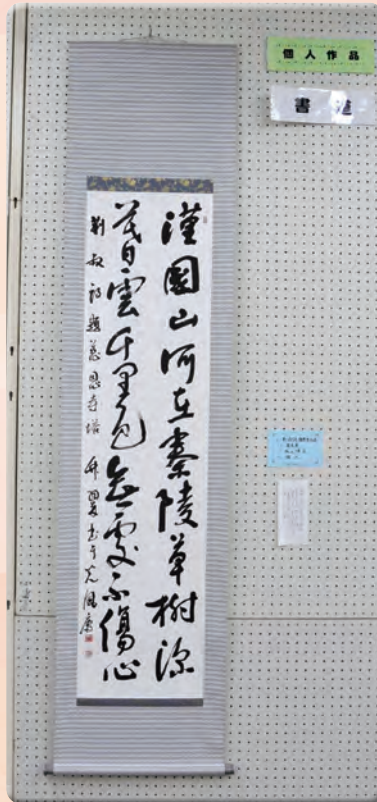 個人作品
書道
漢國山河在秦陵草樹深
暮雲千里色無處不傷心
荊叔詩題慈恩寺塔